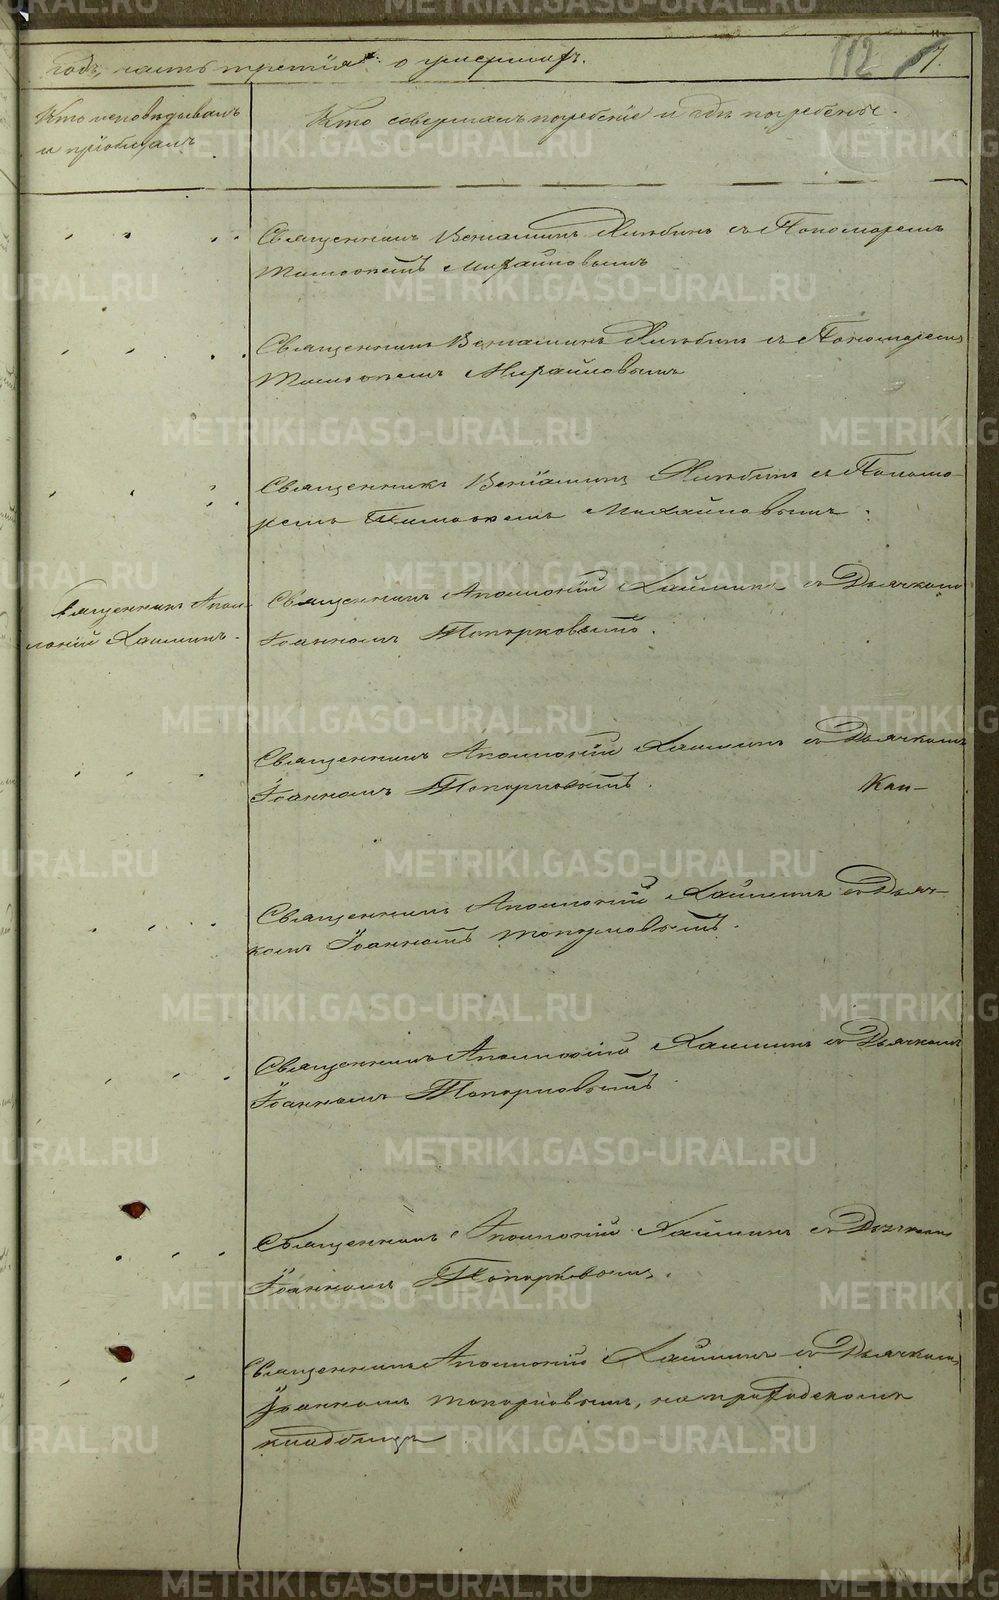 годъ, часть третія, о умершихъ.
112
Кто исповѣдывалъ
и пріобщалъ
Кто совершалъ погребеніе и гдѣ погребены.
Священникъ Веніаминъ съ Пономаремъ
Тимоѳеемъ Михайловымъ
Священникъ Веніаминъ съ Пономаремъ
Тимоѳеемъ Михайловымъ
Священникъ Веніаминъ съ Понома-
ремъ Тимоѳеемъ Михайловымъ.
Священникъ Апол-
лоній Хлынинъ.
Священникъ Аполлоній Хлынинъ съ Дьячкомъ
Іоанномъ Топорковымъ.
Священникъ Аполлоній Хлынинъ съ Дьячкомъ
Іоанномъ Топорковымъ.
Священникъ Аполлоній Хлынинъ съ Дьяч-
комъ Іоанномъ Топорковымъ.
Священникъ Аполлоній Хлынинъ съ Дьячкомъ
Іоанномъ Топорковымъ.
Священникъ Аполлоній Хлынинъ съ Дьячкомъ
Іоанномъ Топорковымъ.
Священникъ Аполлоній Хлынинъ съ Дьячкомъ
Іоанномъ Топорковымъ, на приходскомъ
кладбищѣ
METRIKI.GASO-URAL.RU